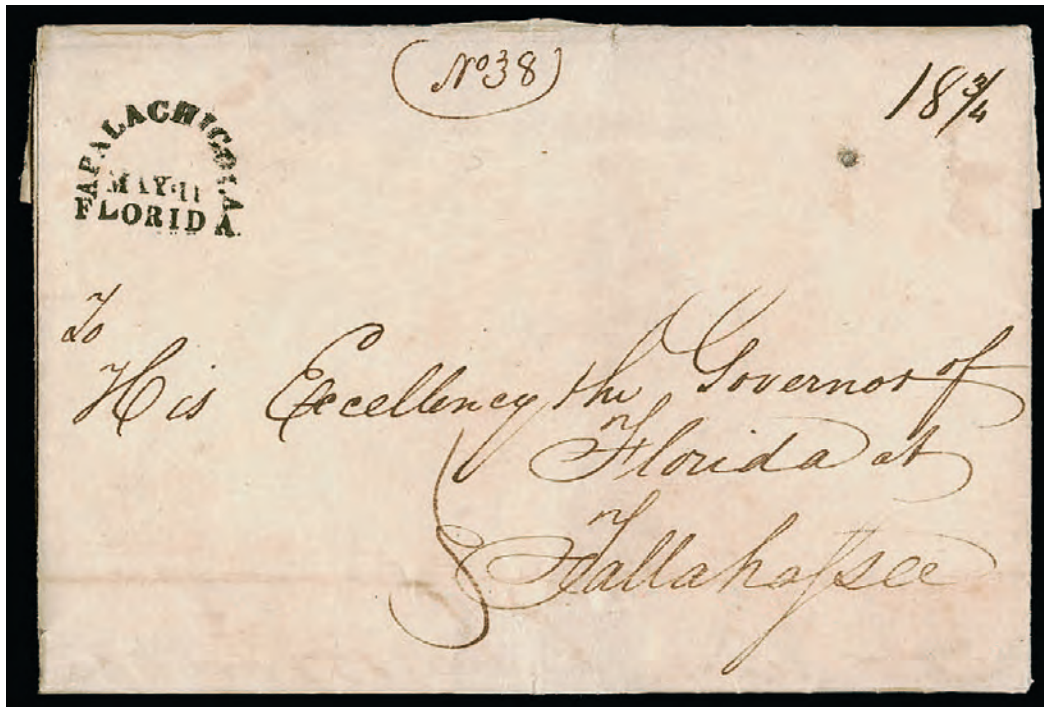 (No 38)
18 3/4
APALACHICOLA
MAY 11
FLORIDA
To
His Excellency the Governor of
Florida at
Tallahassee